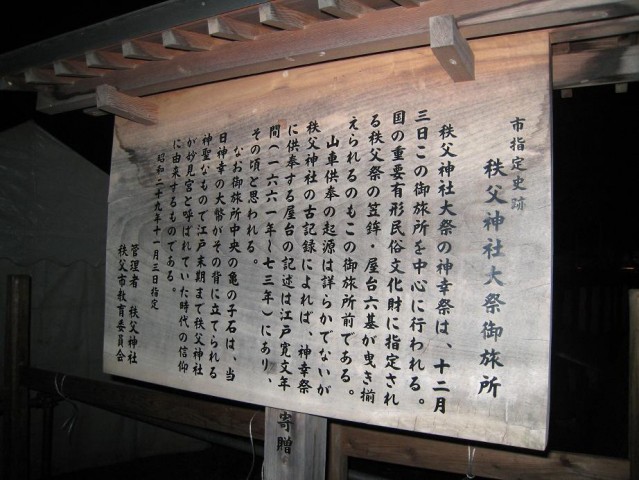 市指定史跡
秩父神社大祭御旅所
秩父神社大祭の神幸祭は、十二月
三日この御旅所を中心に行われる。
国の重要有形民俗文化財に指定され
る秩父祭の笠鉾・屋台六基が曳き揃
えられるのもこの御旅所前である。
山車供奉の起源は詳らかでないが
秩父神社の古記録によれば、神幸祭
に供奉する屋台の記述は江戸寛文年
間(一六六一年～七三年)にあり、
その頃と思われる。
なお御旅所中央の亀の子石は、当
日神幸の大幣がその背に立てられる
神聖なもので江戸末期まで秩父神社
が妙見宮と呼ばれていた時代の信仰
に由来するものである。
昭和二十九年十一月三日指定
管理者 秩父神社
秩父市教育委員会
寄贈